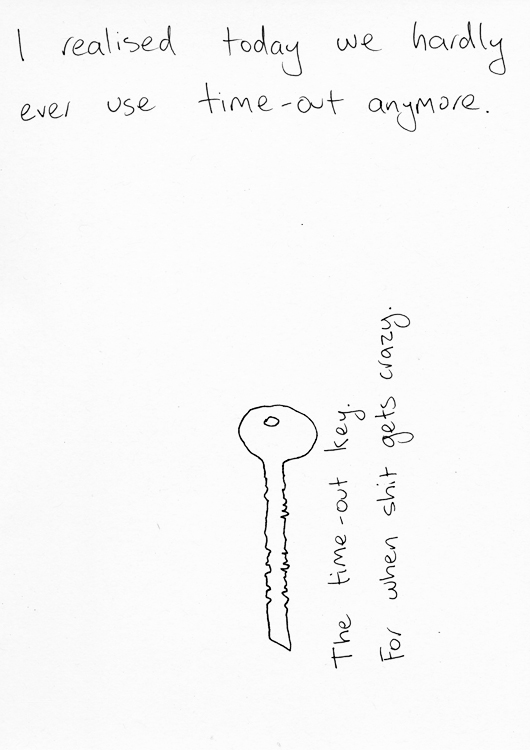 I realised today we hardly
ever use time-out anymore.
The time-out key.
For when shit gets crazy.